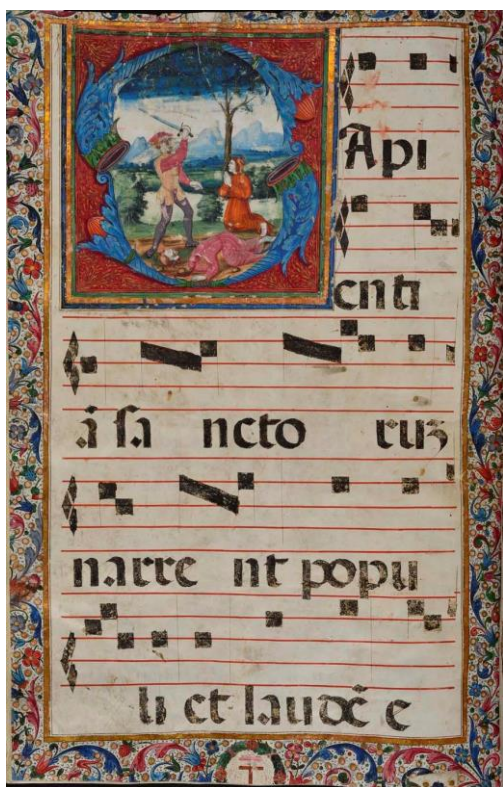 SApi
enti
ā ſa ncto ruꝫ
narre nt popu
li et laudē e